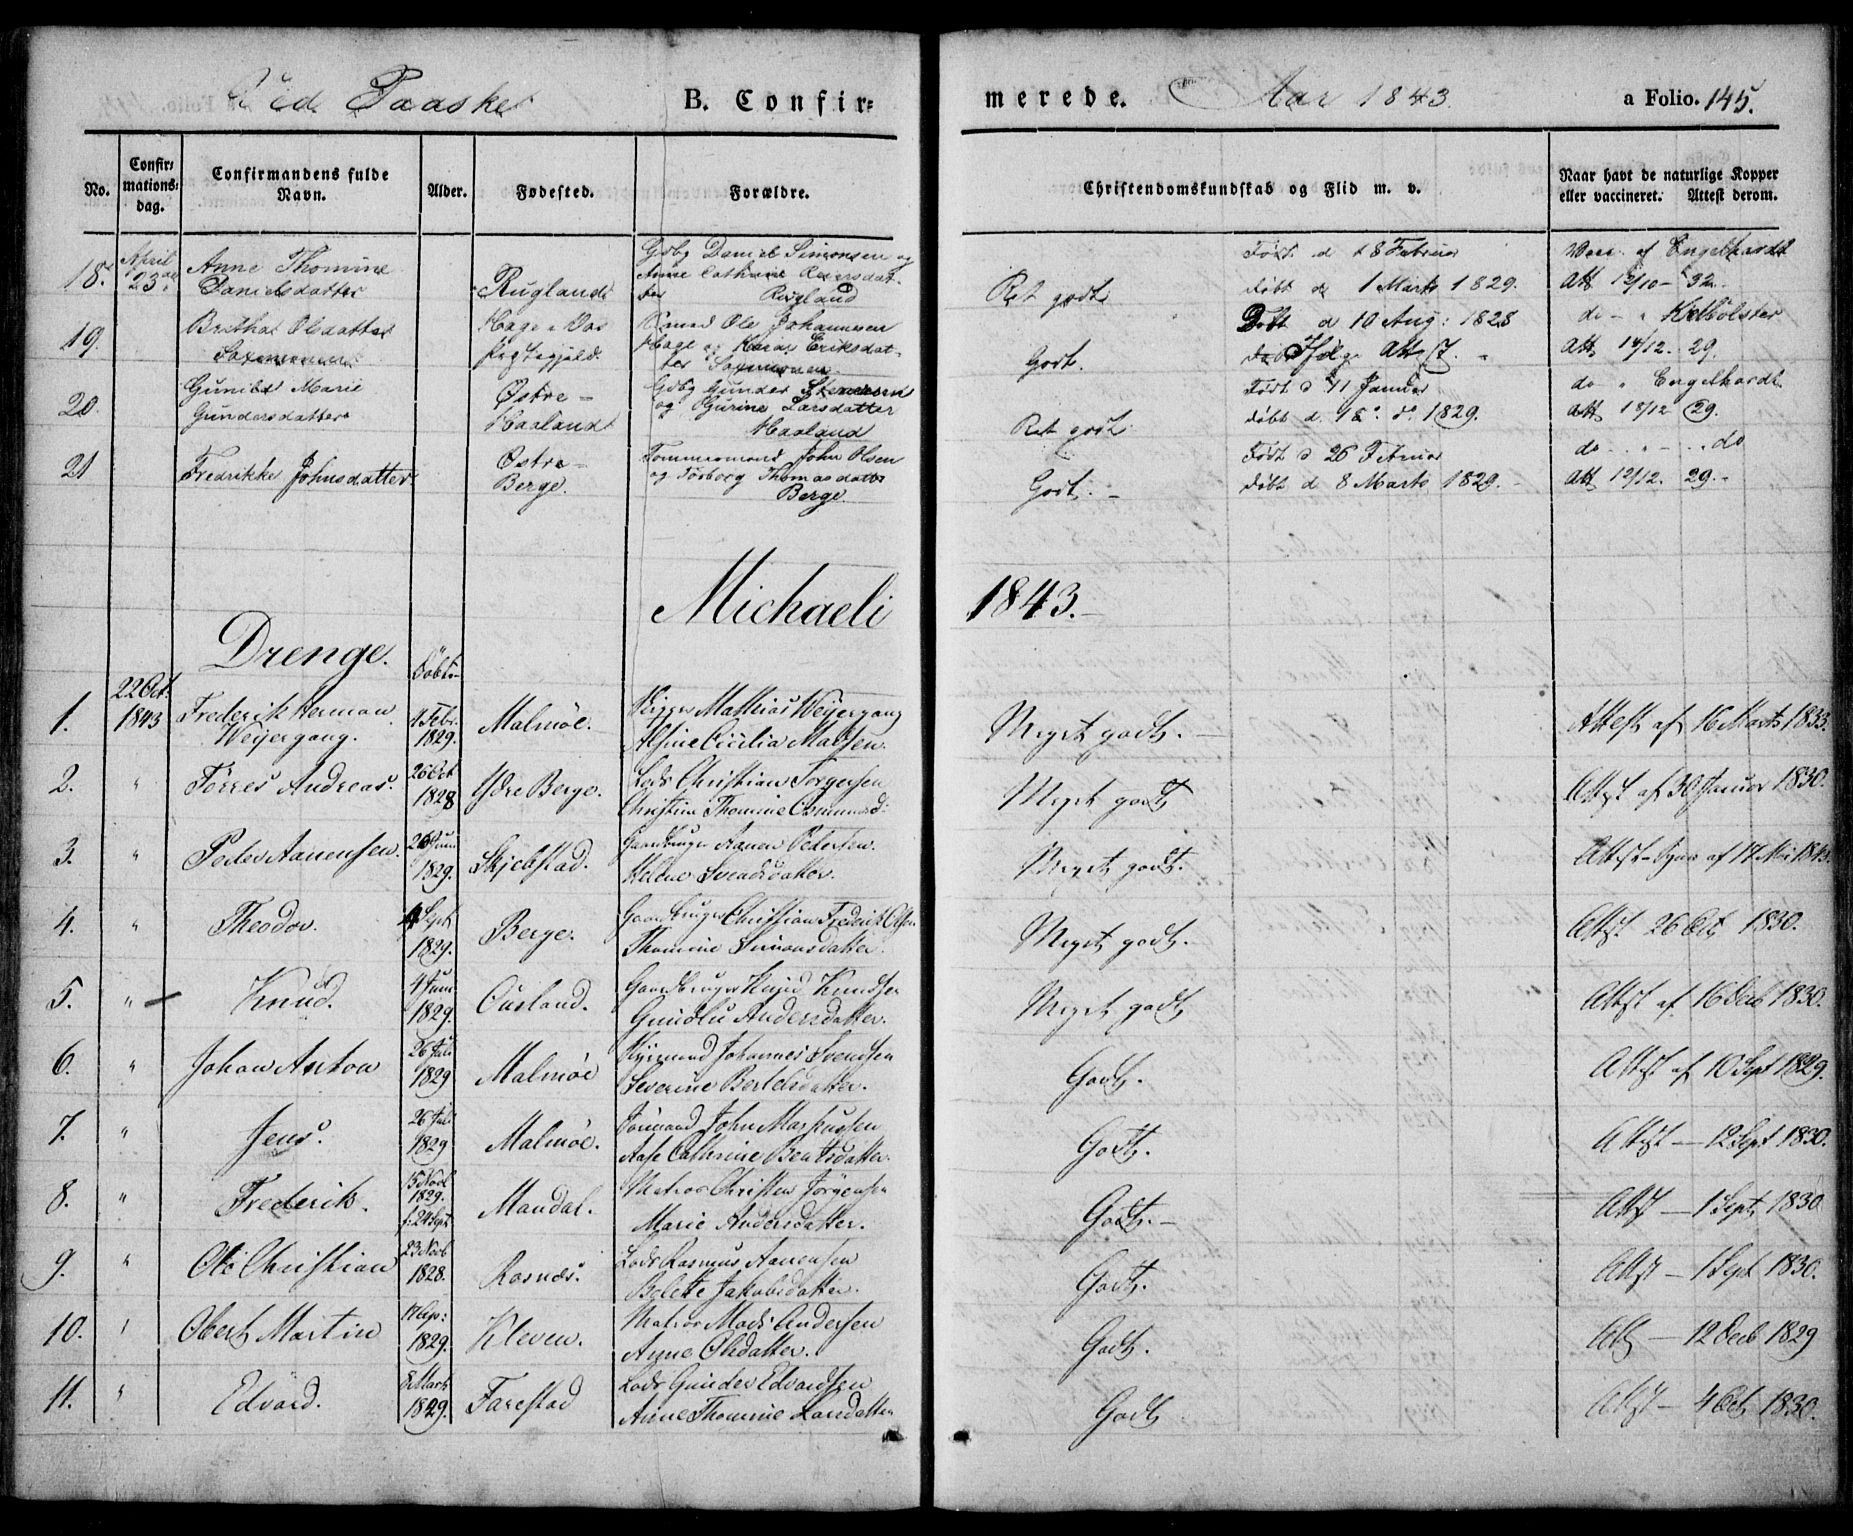 Ved Paaske B. Confir= merede. Aar 1843. a Folio. 145.
No. Confirmations-dag. Confirmandens fulde Navn. Alder. Fødested. Forældre. Christendomskundskab og Flid m. v. Naar havt de naturlige Kopper eller vaccineret. Attest derom.
April Gdbg Daniel Simonsen og Født d 18 Februar Vacc. af Engelhardt
18. 23 Anne Thomine Danielsdatter Rugland Anne Cathrine datter Rugland Ret godt døbt d 1 Marts 1829. Att 12/10 - 32.
19. Brithe Olsdatter Hage Vos Ole Johannesen d 10 Aug: 1828 do
Præstegjeld Hage og Eriksdatter Godt. Ifølge Att Att 14/12. 29.
20. Gunild Marie Østre Gdbg Gunder Født d 11 Januar do Engelhardt
Gundersdatter Haaland og Gurine Larsdatter Haaland Ret godt døbt d. 18 do 1829. Att 18/12 29.
21 Fredrikke Johnsdatter Østre Tømmermand John Olsen Født d 26 Februar do do
Berge. og Torborg Thomasdatter Berge. Godt. døbt d 8 Marts 1829. Att 12/12. 29.
Michaeli 1843.
Drenge. Døbt
22 Oct.
1. 1843 Frederik Herman Weyergang. 4 Febr. 1829. Malmöe. Mathias Weyergang Alsine Cicilia Madsen. Meget godt. Attest af 16 Marts 1833.
2. " Törres Andreas. 26 Oct 1828 Ydre Berge. Lods Christian Torgersen Christine Thomine Osmund: Meget godt Attest af 30 Januar 1830.
3. " Peder Aanensen. 26 Juni 1829. Skjebstad. Gaardbruger Aanen Pedersen. Helene Svendsdatter. Meget godt. Attest 17 Mai 1843.
4. " Theodor. 4 Sept 1829. Berge. Gaardbruger Christian Frederik Olsen Thomine Simonsdatter. Meget godt. Attest 26 Oct 1830.
5. " Knud. 4 Juni 1829. Gaardbruger Knud Knudsen Gundlu Andersdatter. Meget godt Attest af 16 Decb 1830.
6. " Johan Anton 26 Juli 1829 Malmöe Johannes Svendsen Severine Bertelsdatter. Godt. Attest af 10 Sept 1829.
7. " Jens. 26 Juli 1829 Malmöe. John Aase Cathrine Berntsdatter. Godt. Attest — 12 Sept 1830.
8. " Frederik. 15 Novb 1829. f: 24 Sept Mandal. Matros Christen Jörgensen Marie Andersdatter. Godt. Attst — 1 Sept 1830
9. " Ole Christian 23 Novb 1828. Rosnæs. Lods Rasmus Aanensen Bolette Jakobsdatter. Godt. Attst — 1 Sept 1830.
10. " Obert Martin 1829. Kleven. Matros Mads Andersen Anne Olsdatter. Godt. Att — 12 Decb 1829
11. " Edvard. 8 Marts 1829. Farestad Lods Gunder Edvardsen Anne Thomine Larsdatter Godt Attst — 4 Oct 1830.